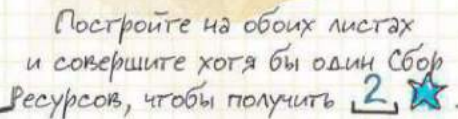 Постройте на обоих листах
и совершите хотя бы один Сбор
Ресурсов, чтобы получить 2